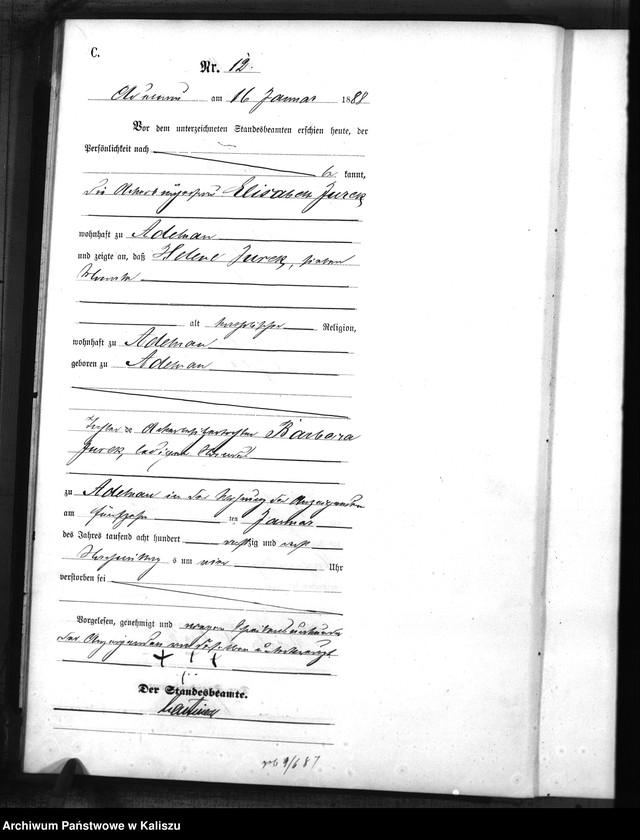 C.
Nr. 12.
Adelnau am 16 Januar 1888
Vor dem unterzeichneten Standesbeamten erschien heute, der
Persönlichkeit nach
be kannt,
die Ackerbürgersfrau Elisabeth Jurek
wohnhaft zu Adelnau
und zeigte an, daß Helene Jurek, sieben
Monate
alt katholischer Religion,
wohnhaft zu Adelnau
geboren zu Adelnau
Tochter der Barbara
Jurek, ledigen Standes
zu Adelnau in der Wohnung der Anzeigenden
am fünfzehn ten Januar
des Jahres tausend acht hundert achtzig und acht
Nachmittag s um vier Uhr
verstorben sei
Vorgelesen, genehmigt und wegen Schreibensunkunde
der Anzeigenden von derselben unterkreuzt
+ + +
Der Standesbeamte.
Archiwum Państwowe w Kaliszu